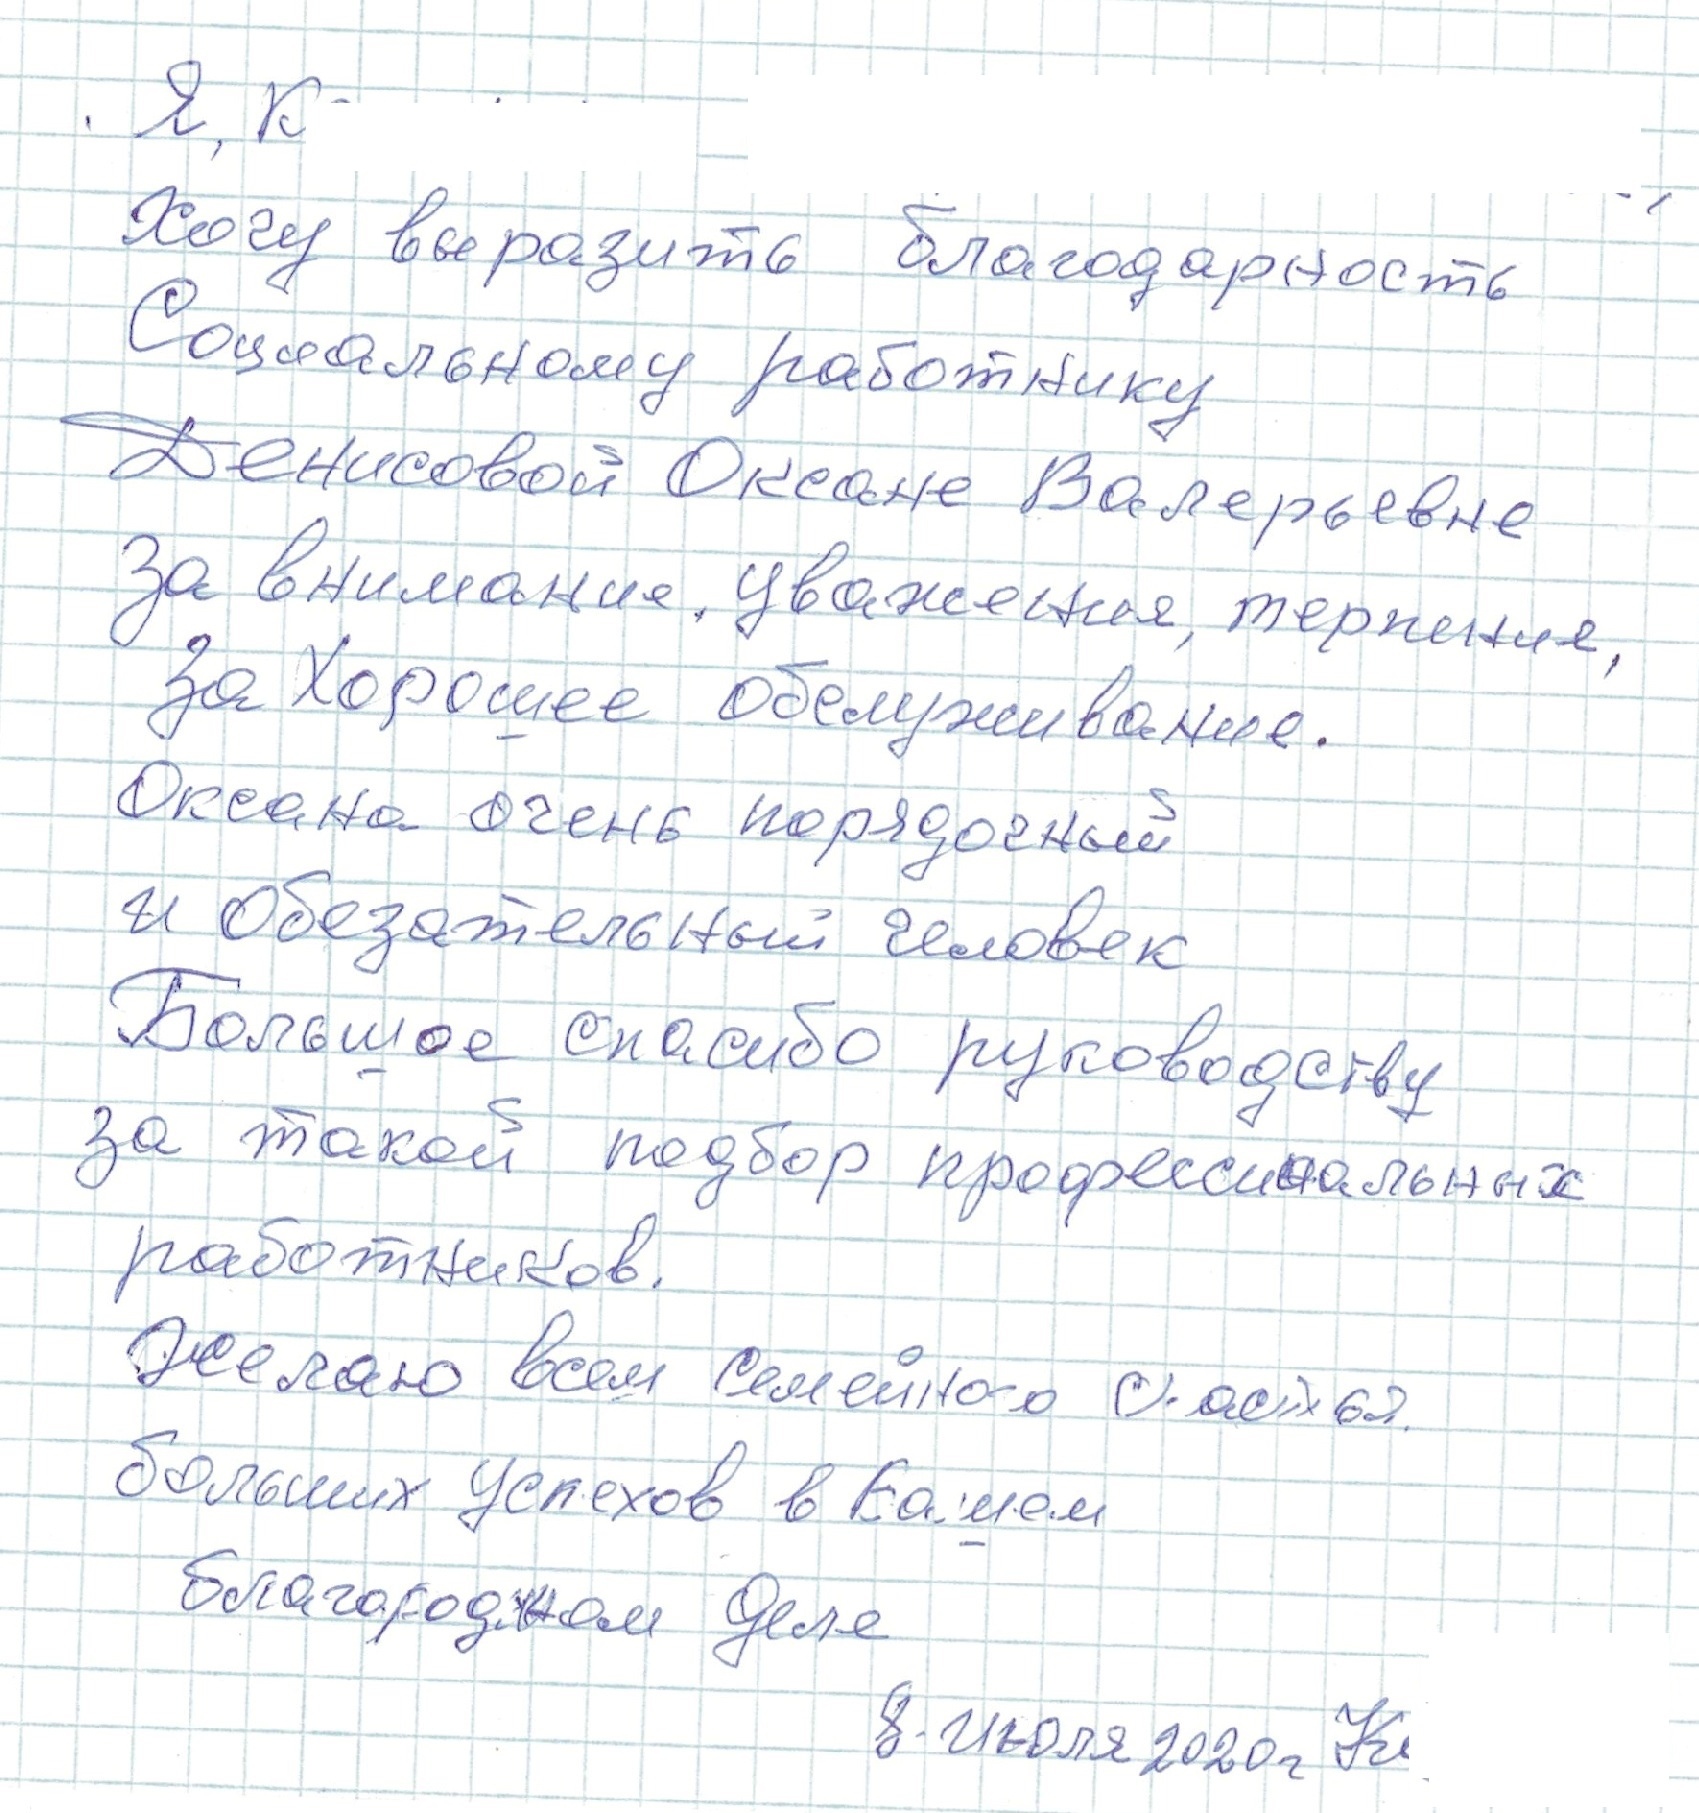 Я, К
Хочу выразить благодарность
Социальному работнику
Денисовой Оксане Валерьевне
За внимание, уважения, терпения,
За хорошее обслуживание.
Оксана очень порядочный
и обезательный человек
Большое спасибо руководству
за такой подбор профессиональных
работников.
Желаю всем семейного счастья.
больших успехов в Вашем
благородном деле
8. июля 2020г